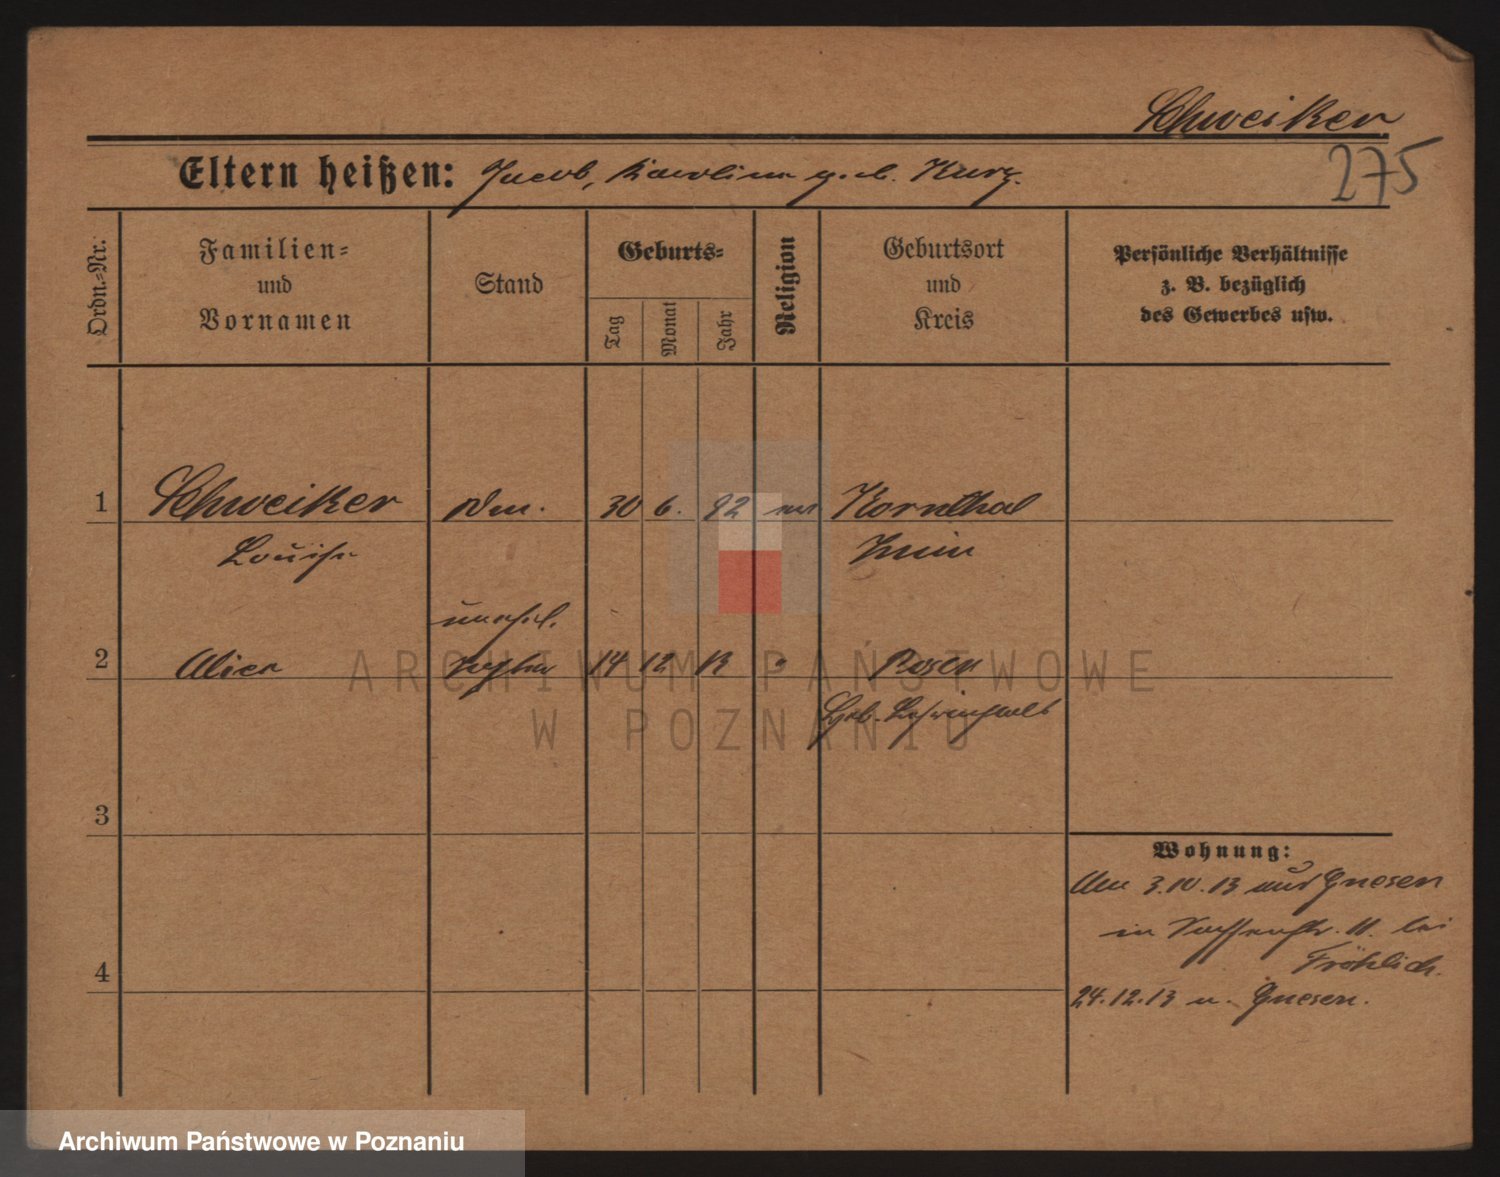 Schweiker
Eltern heißen: Jacob, Karoline geb. Kurz.
275
Ordn.=Nr.
Familien=
und
Vornamen
Stand
Geburts=
Tag
Monat
Jahr
Religion
Geburtsort
und
Kreis
Persönliche Verhältnisse
z. B. bezüglich
des Gewerbes usw.
1 Schweiker 30 6. 92 Kornthal
Louise Znin
unehel.
2 Alice Tochter 14 12 13 " Posen
3
Wohnung:
Am 3.10.13 aus Gnesen
in 11. bei
4 Fröhlich.
24.12.13 n. Gnesen.
ARCHIWUM PAŃSTWOWE
W POZNANIU
Archiwum Państwowe w Poznaniu